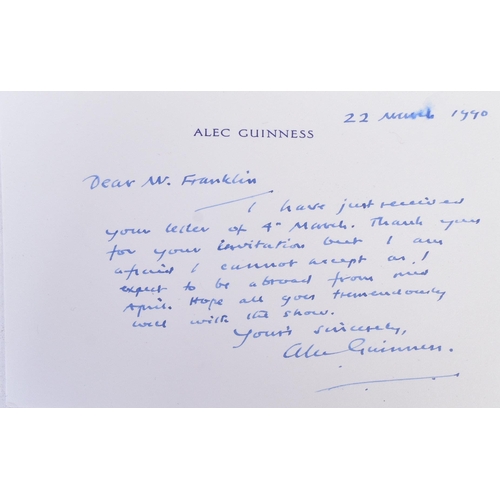 22 March 1990
ALEC GUINNESS
Dear Mr. Franklin
I have just received
your letter of 4th March. Thank you
for your invitation but I am
afraid I cannot accept as I
expect to be abroad from mid
April. Hope all goes tremendously
well with the show.
Yours sincerely,
Alec Guinness.